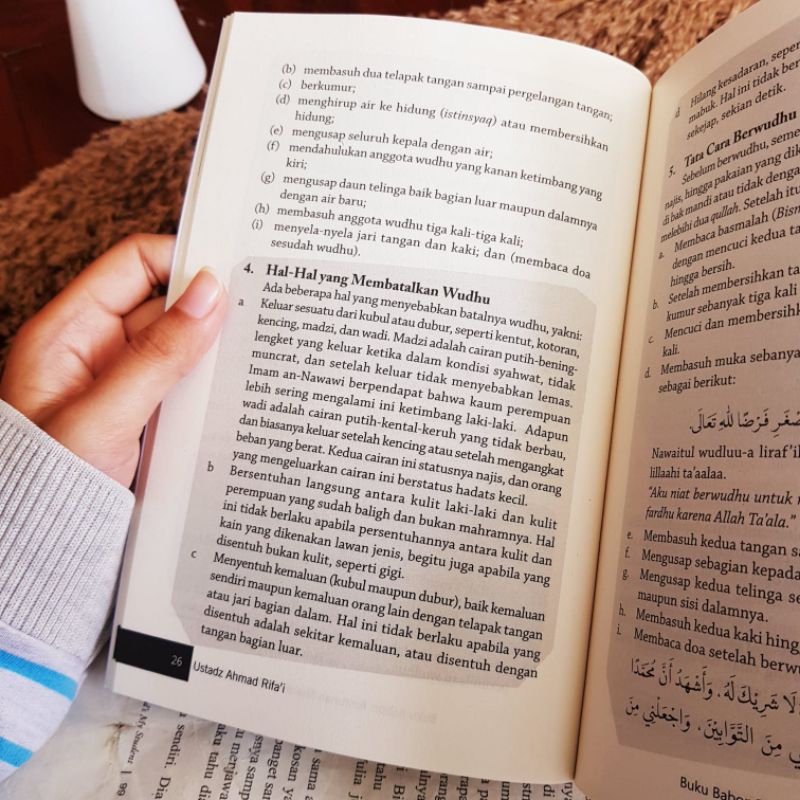 (b) membasuh dua telapak tangan sampai pergelangan tangan;
(c) berkumur;
(d) menghirup air ke hidung (istinsyaq) atau membersihkan
hidung;
(e) mengusap seluruh kepala dengan air;
(f) mendahulukan anggota wudhu yang kanan ketimbang yang
kiri;
(g) mengusap daun telinga baik bagian luar maupun dalamnya
dengan air baru;
(h) membasuh anggota wudhu tiga kali-tiga kali;
(i) menyela-nyela jari tangan dan kaki; dan (membaca doa
sesudah wudhu).
4. Hal-Hal yang Membatalkan Wudhu
Ada beberapa hal yang menyebabkan batalnya wudhu, yakni:
a Keluar sesuatu dari kubul atau dubur, seperti kentut, kotoran,
kencing, madzi, dan wadi. Madzi adalah cairan putih-bening-
lengket yang keluar ketika dalam kondisi syahwat, tidak
muncrat, dan setelah keluar tidak menyebabkan lemas.
Imam an-Nawawi berpendapat bahwa kaum perempuan
lebih sering mengalami ini ketimbang laki-laki. Adapun
wadi adalah cairan putih-kental-keruh yang tidak berbau,
dan biasanya keluar setelah kencing atau setelah mengangkat
beban yang berat. Kedua cairan ini statusnya najis, dan orang
yang mengeluarkan cairan ini berstatus hadats kecil.
b Bersentuhan langsung antara kulit laki-laki dan kulit
perempuan yang sudah baligh dan bukan mahramnya. Hal
ini tidak berlaku apabila persentuhannya antara kulit dan
kain yang dikenakan lawan jenis, begitu juga apabila yang
disentuh bukan kulit, seperti gigi.
c Menyentuh kemaluan (kubul maupun dubur), baik kemaluan
sendiri maupun kemaluan orang lain dengan telapak tangan
atau jari bagian dalam. Hal ini tidak berlaku apabila yang
disentuh adalah sekitar kemaluan, atau disentuh dengan
tangan bagian luar.
26 Ustadz Ahmad Rifa'i
d Hilang kesadaran, seper
mabuk. Hal ini tidak ber
sekejap, sekian detik.
5. Tata Cara Berwudhu
Sebelum berwudhu, seme
najis, hingga pakaian yang dik
di bak mandi atau tidak denga
melebihi dua qullah. Setelah itu
a. Membaca basmalah (Bism
dengan mencuci kedua ta
hingga bersih.
b. Setelah membersihkan ta
kumur sebanyak tiga kali
c. Mencuci dan membersihk
kali.
d. Membasuh muka sebanya
sebagai berikut:
فَرْضًا لِلّٰهِ تَعَالَى
Nawaitul wudluu-a liraf'il
lillaahi ta'aalaa.
"Aku niat berwudhu untuk
fardhu karena Allah Ta'ala."
e. Membasuh kedua tangan sa
f. Mengusap sebagian kepada
g. Mengusap kedua telinga se
maupun sisi dalamnya.
h. Membasuh kedua kaki hing
i. Membaca doa setelah berwu
لَا شَرِيْكَ لَهُ، وَأَشْهَدُ أَنَّ مُحَمَّدًا
مِنَ التَّوَّابِيْنَ، وَاجْعَلْنِي مِنَ
Buku Babo
My Student | 99
sendiri.